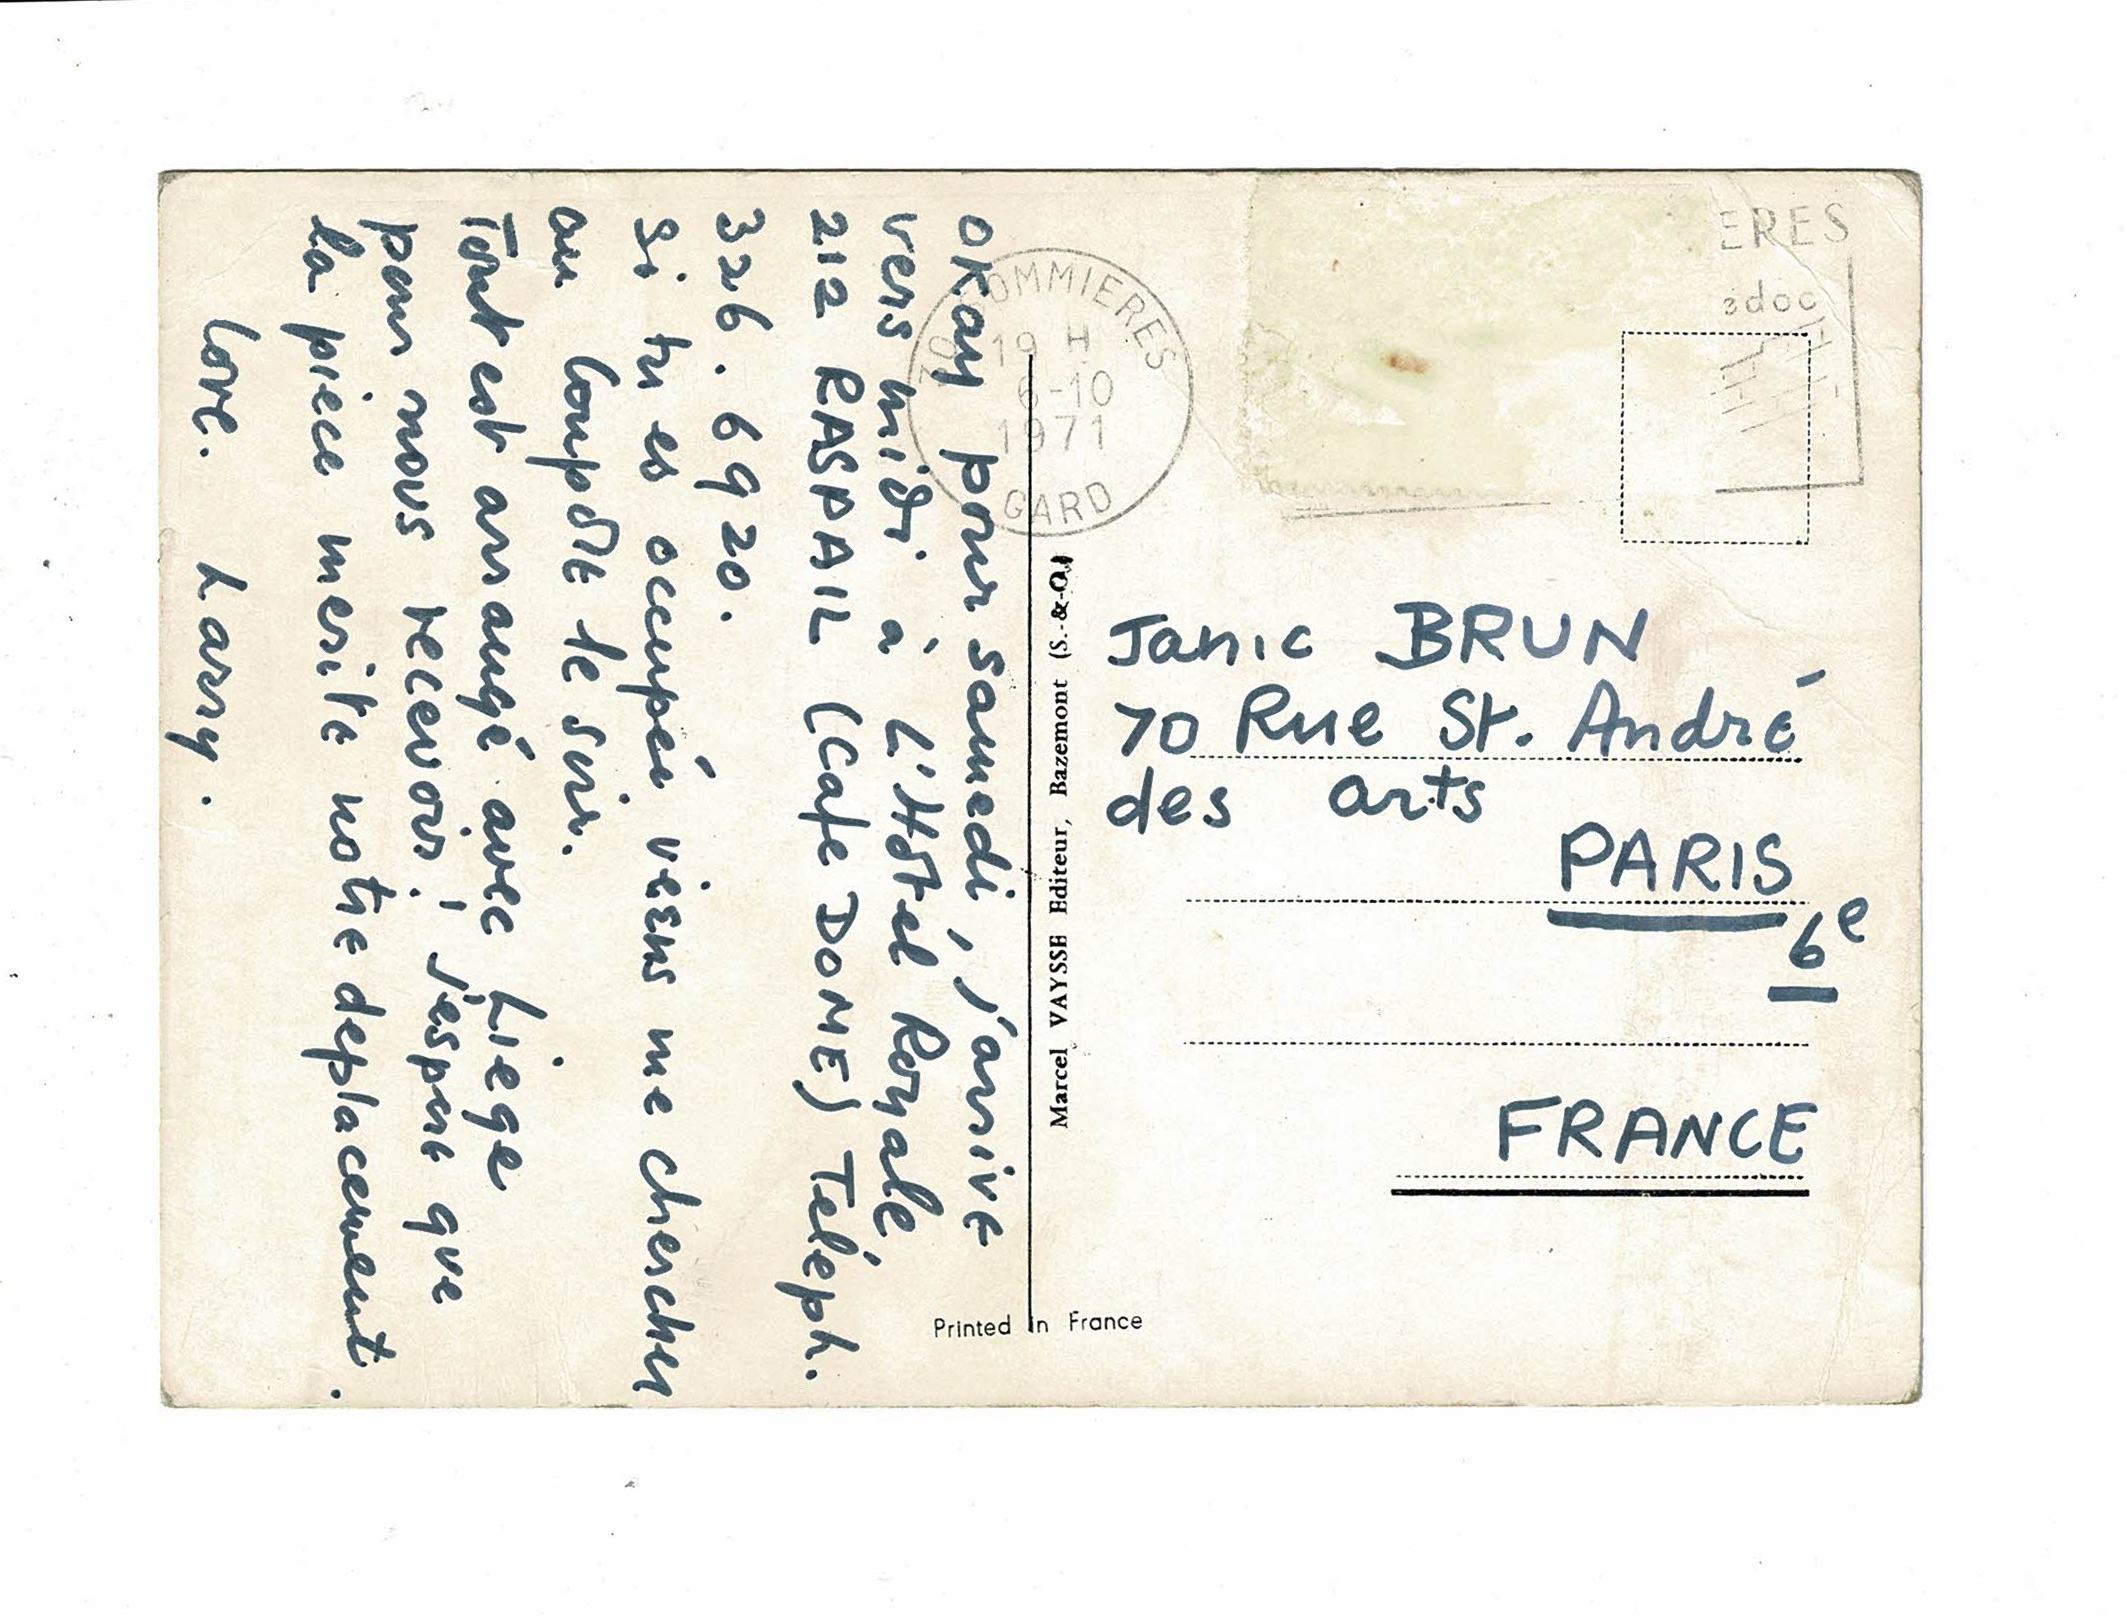 Okay pour samedi, j'arrive
vers midi à L'Hôtel Royale
212 RASPAIL (Cafe DOME) Téléph.
326.6920.
Si tu es occupée viens me chercher
au Coupole le soir.
Tout est arrangé avec Liege
pour nous recevoir; j'espere que
la pièce merite notre deplacement.
love. Larry.
SOMMIERES
19 H
6-10
1971
GARD
ERES
edoc
Janic BRUN
70 Rue St. André
des arts
PARIS
6e
FRANCE
Marcel VAYSSE Editeur, Bazemont (S.-&-O.)
Printed in France